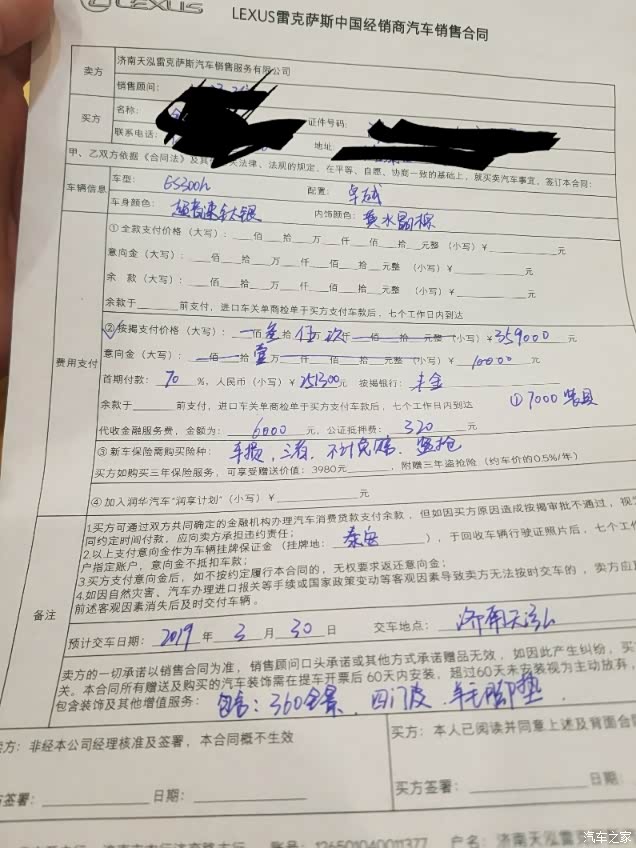 LEXUS
LEXUS雷克萨斯中国经销商汽车销售合同
卖方
济南天泓雷克萨斯汽车销售服务有限公司
销售顾问:
买方
名称: 证件号码:
联系电话: 地址:
甲、乙双方依据《合同法》及其 关法律、法规的规定,在平等、自愿、协商一致的基础上,就买卖汽车事宜,签订本合同:
车辆信息
车型: ES300h 配置: 卓越
车身颜色: 超音速钛银 内饰颜色: 黄水晶棕
费用支付
①全款支付价格(大写):___佰___拾___万___仟___佰___拾___元整 (小写)¥___元
意向金(大写):___佰___拾___万___仟___佰___拾___元整 (小写)¥___元
余 款(大写):___佰___拾___万___仟___佰___拾___元整 (小写)¥___元
余款于___前支付,进口车关单商检单于买方支付车款后,七个工作日内到达
②按揭支付价格(大写): 佰叁拾伍 玖仟 佰 拾 元整 (小写)¥359000元
意向金(大写): 佰 拾壹万 仟 佰 拾 元整 (小写)¥10000元
首期付款: 70 %,人民币(小写)¥251300元 按揭银行: 丰金
余款于___前支付,进口车关单商检单于买方支付车款后,七个工作日内到达
①7000装具
代收金融服务费,金额为: 6000 元,公证抵押费: 320 元
③新车保险需购买险种: 车损,三者,不计免赔,盗抢
买方如购买三年保险服务,可享受赠送价值:3980元___,附赠三年盗抢险(约车价的0.5%/年)
④加入润华汽车“润享计划”(小写)¥___元
备注
1.买方可通过双方共同确定的金融机构办理汽车消费贷款支付余款,但如因买方原因造成按揭审批不通过,视
同约定时间付款,应向卖方承担违约责任;
2.以上支付意向金作为车辆挂牌保证金(挂牌地: 泰安 ),于回收车辆行驶证照片后,七个工作
户指定账户,意向金不抵扣车款;
3.买方支付意向金后,如不按约定履行本合同的,无权要求返还意向金;
4.如因自然灾害、汽车办理进口报关等手续或国家政策变动等客观因素导致卖方无法按时交车的,卖方应
前述客观因素消失后及时交付车辆。
预计交车日期: 2019 年 3 月 30 日 交车地点: 济南天泓
卖方的一切承诺以销售合同为准,销售顾问口头承诺或其他方式承诺赠品无效,如因此产生纠纷,买
关。本合同所有赠送及购买的汽车装饰需在提车开票后60天内安装,超过60天未安装视为主动放弃,
包含装饰及其他增值服务: 包含:360全景,四门皮,羊毛脚垫,
卖方:非经本公司经理核准及签署,本合同概不生效
买方:本人已阅读并同意上述及背面合
方签署:___日期:___
买方签署:___日期:
账号:126501040011377 户名:济南天泓雷克萨斯
汽车之家